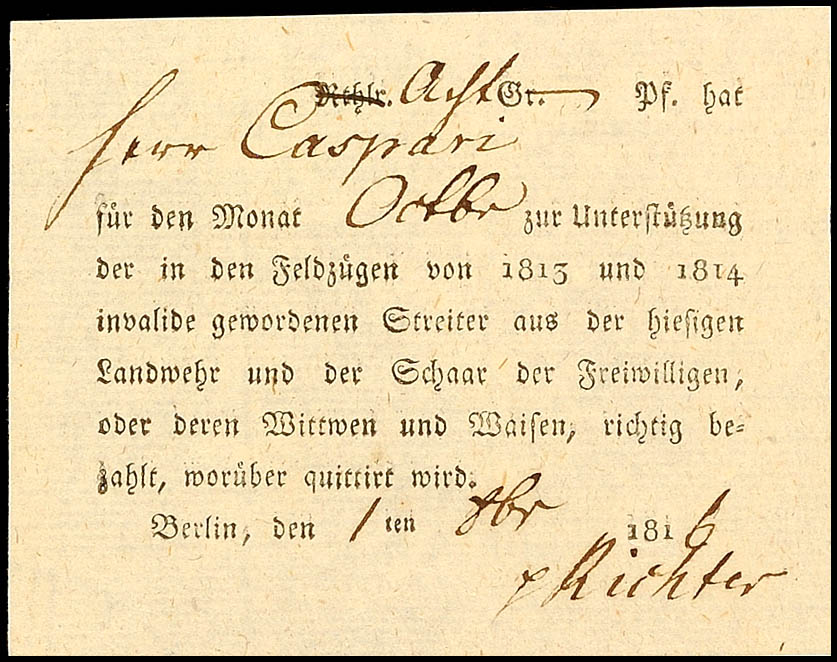 Rthlr. Acht Gr. — Pf. hat
Herr Caspari
für den Monat Octbr zur Unterstützung
der in den Feldzügen von 1813 und 1814
invalide gewordenen Streiter aus der hiesigen
Landwehr und der Schaar der Freiwilligen,
oder deren Wittwen und Waisen, richtig be-
zahlt, worüber quittirt wird.
Berlin, den 1 ten 8br 1816
p Richter